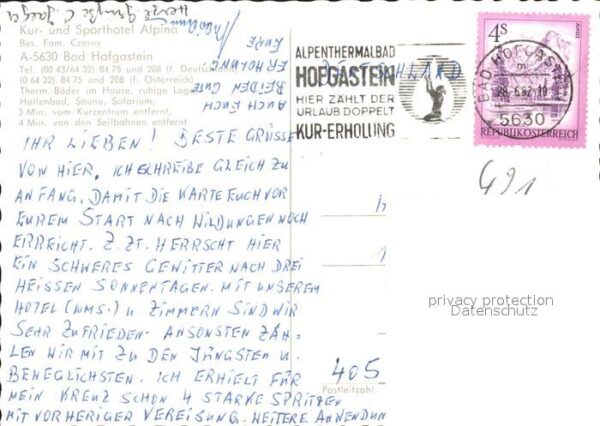 Herzl. Grüße
Kur- und Sporthotel Alpina
Bes. Fam. Czerny
A-5630 Bad Hofgastein
Tel. (00 43/64 32) 84 75 und 208 (f. Deutschland)
(0 64 32) 84 75 und 208 (f. Österreich)
Therm.-Bäder im Hause, ruhige Lage
Hallenbad, Sauna, Solarium,
3 Min. vom Kurzentrum entfernt
4 Min. von den Seilbahnen entfernt
AUCH EUCH
BEIDEN GUTE
ERHOLUNG.
EURE
IHR LIEBEN! BESTE GRÜSSE
VON HIER. ICH SCHREIBE GLEICH ZU
ANFANG, DAMIT DIE KARTE EUCH VOR
EUREM START NACH WILDUNGEN NOCH
ERREICHT. Z. ZT. HERRSCHT HIER
EIN SCHWERES GEWITTER NACH DREI
HEISSEN SONNENTAGEN. MIT UNSEREM
HOTEL (UMS.) U. ZIMMERN SIND WIR
SEHR ZUFRIEDEN. ANSONSTEN ZÄH-
LEN WIR MIT ZU DEN JÜNGSTEN U.
BEWEGLICHSTEN. ICH ERHIELT FÜR
MEIN KREUZ SCHON 4 STARKE SPRITZEN
MIT VORHERIGER VEREISUNG. WEITERE ANWENDUN
ALPENTHERMALBAD
HOFGASTEIN
HIER ZÄHLT DER
URLAUB DOPPELT
KUR-ERHOLUNG
BAD HOFGASTEIN
m
28.-6.82.10
5630
4S
REPUBLIK ÖSTERREICH
491
405
Postleitzahl
privacy protection
Datenschutz